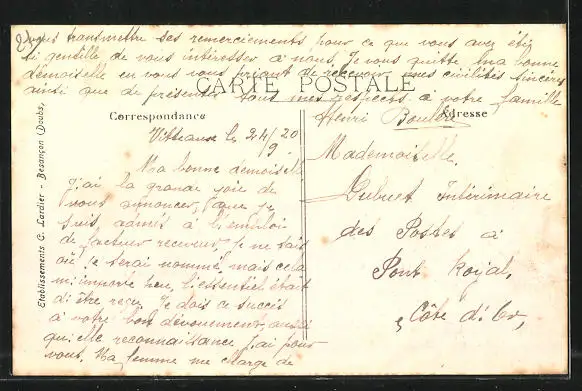 CARTE POSTALE
Correspondance
Adresse
Etablissements C. Lardier - Besançon (Doubs)
Vitteaux le 24/9 20
Ma bonne demoiselle
J'ai la grande joie de
vous annoncer, que je
suis admis à l'emploi
de facteur receveur, je ne sais
où je serai nommé, mais cela
m'importe peu, l'essentiel était
d'être reçu. Je dois ce succès
à votre bon dévouement, aussi
quelle reconnaissance j'ai pour
vous. Ma femme me charge de
vous transmettre ses remerciements pour ce que vous avez été
si gentille de vous intéresser à nous. Je vous quitte, ma bonne
demoiselle en vous priant de recevoir mes civilités sincères
ainsi que de présenter tous mes respects à votre famille
Henri
Mademoiselle
Intérimaire
des Postes à
Pont Royal,
Côte d'Or,